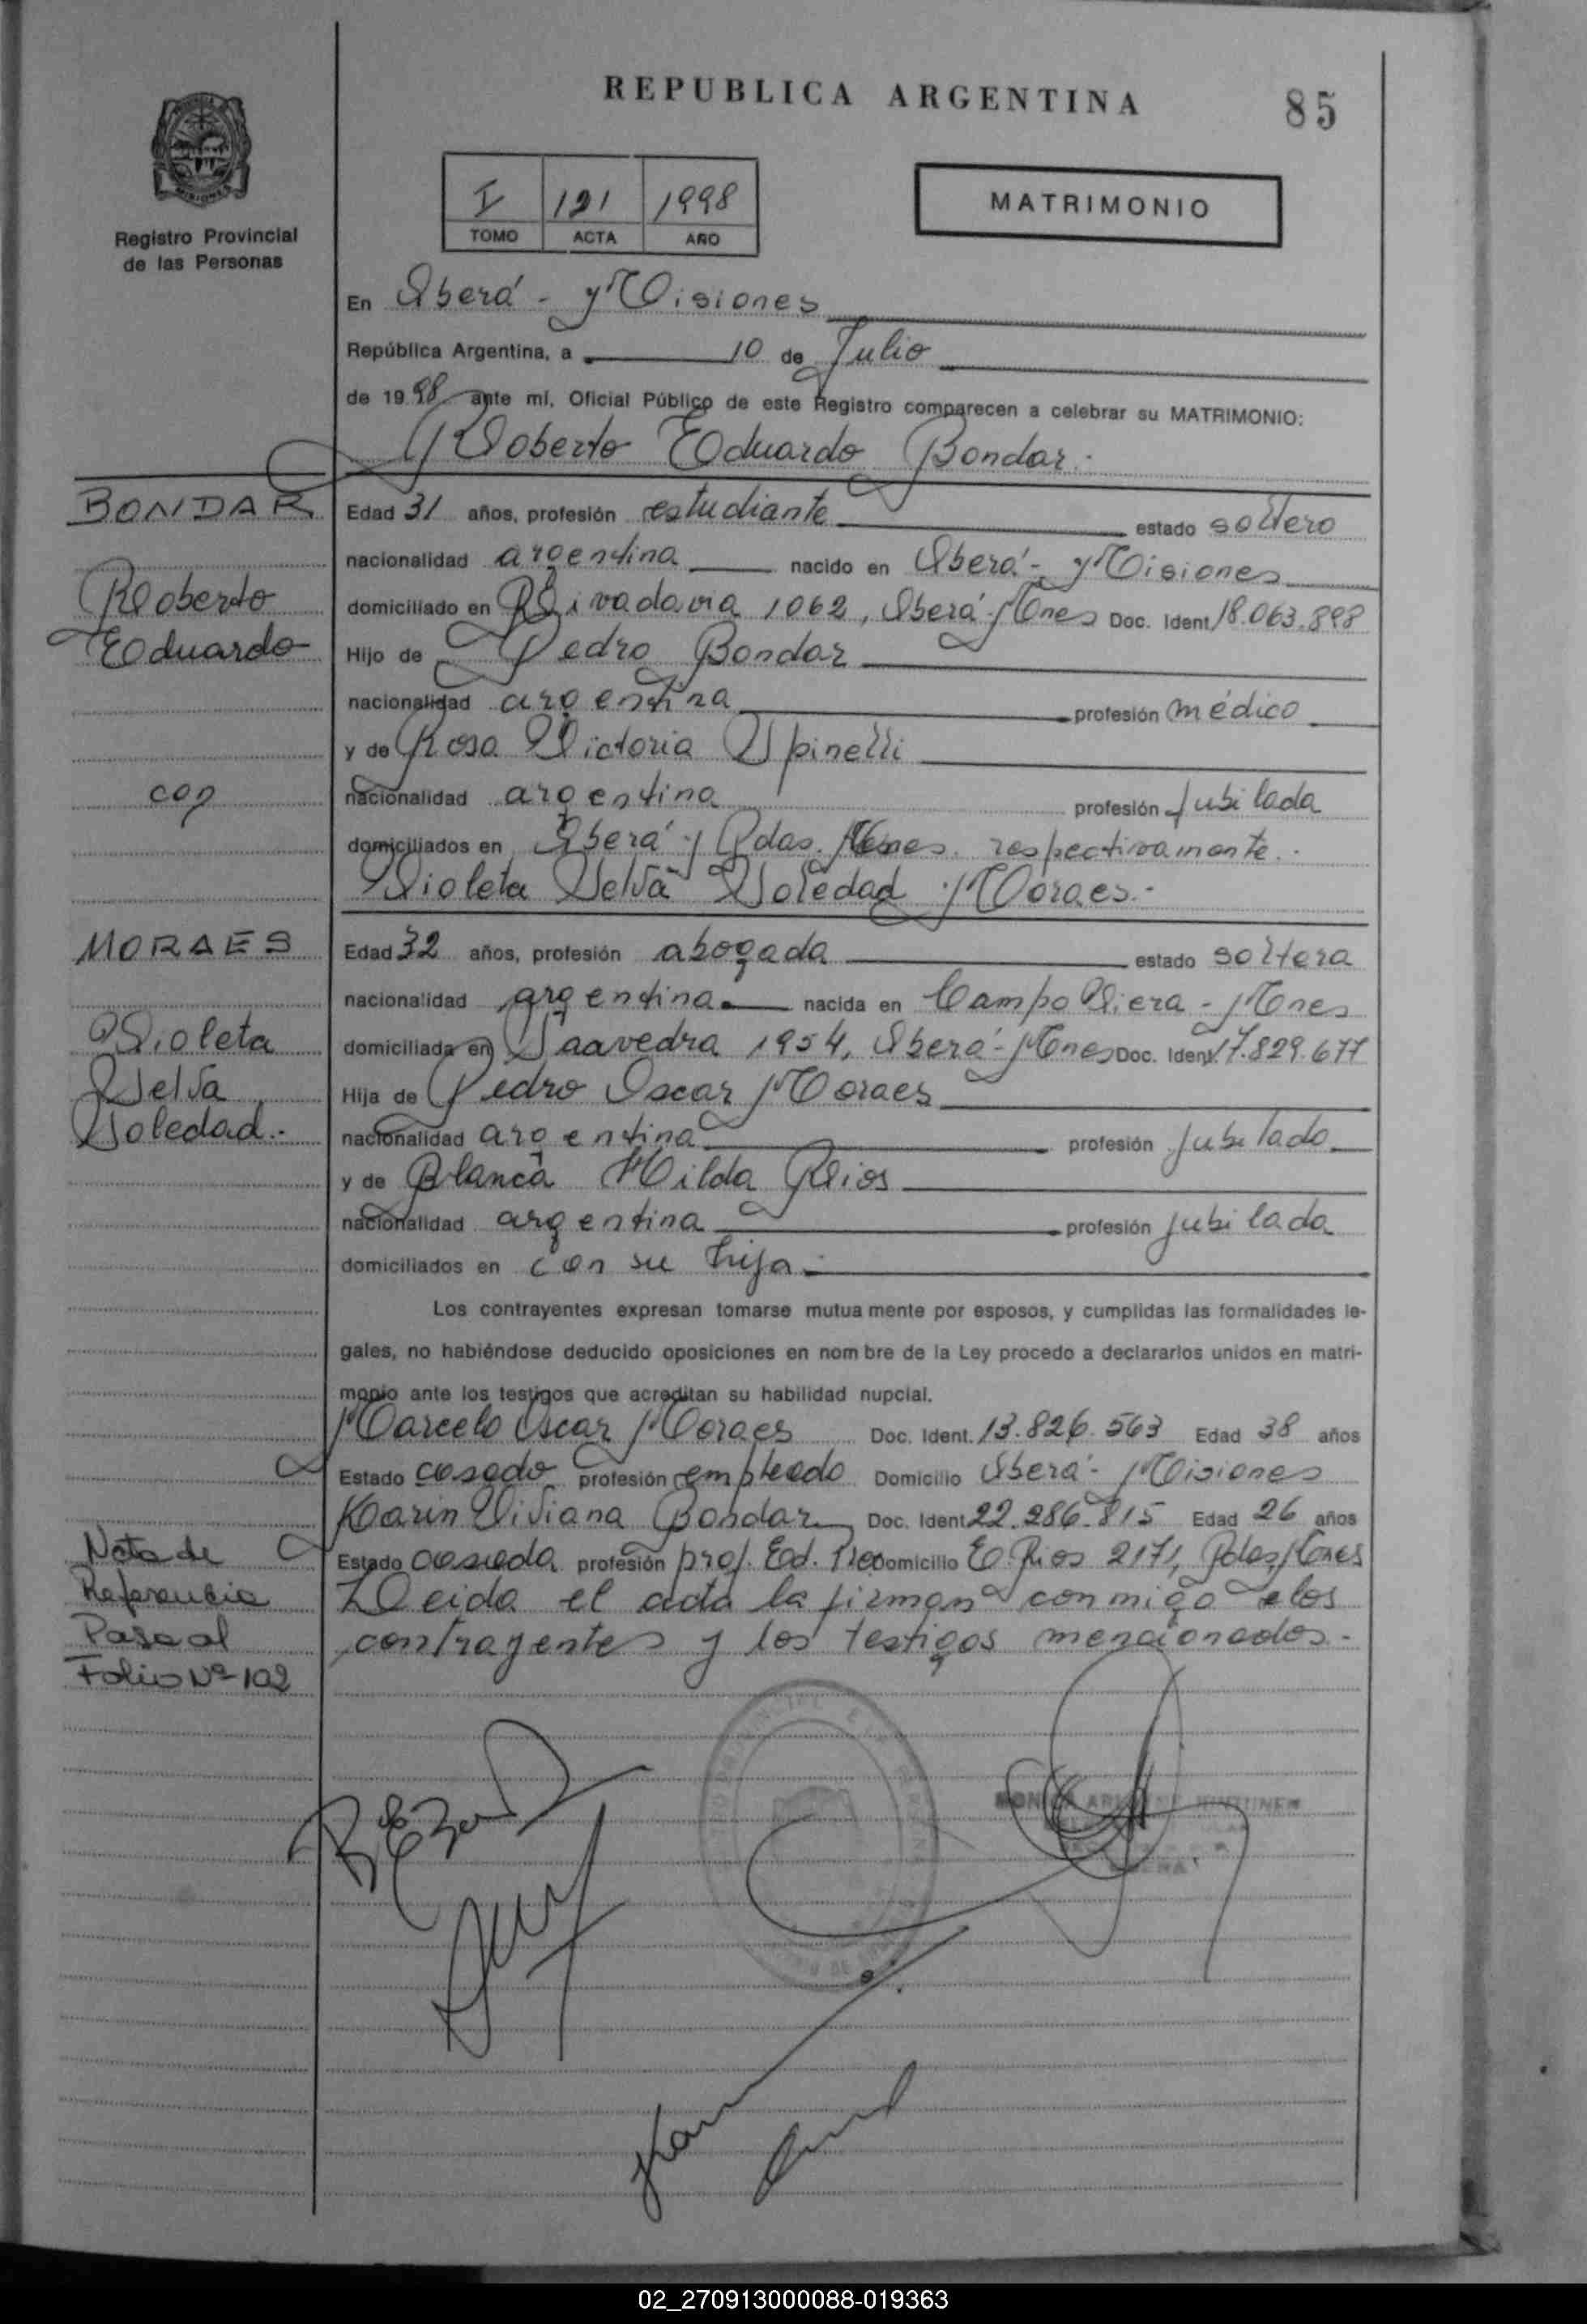 REPUBLICA ARGENTINA
85
MISIONES
Registro Provincial
de las Personas
I 121 1998
TOMO ACTA AÑO
MATRIMONIO
En Oberá - Misiones
República Argentina, a 10 de Julio
de 1998 ante mí, Oficial Público de este Registro comparecen a celebrar su MATRIMONIO:
Roberto Eduardo Bondar.-
BONDAR
Roberto
Eduardo
con
MORAES
Violeta
Selva
Soledad.-
Nota de
Referencia
Pase al
Folio Nº 102
Edad 31 años, profesión estudiante estado soltero
nacionalidad argentina nacido en Oberá - Misiones
domiciliado en Rivadavia 1062, Oberá - Mnes Doc. Ident. 18.063.898
Hijo de Pedro Bondar
nacionalidad argentina profesión médico
y de Rosa Victoria Spinelli
nacionalidad argentina profesión Jubilada
domiciliados en Oberá y Pdas. Mnes. respectivamente.-
Violeta Selva Soledad Moraes.-
Edad 32 años, profesión abogada estado soltera
nacionalidad argentina nacida en Campo Viera - Mnes
domiciliada en Saavedra 1954, Oberá - Mnes Doc. Ident. 17.829.677
Hija de Pedro Oscar Moraes
nacionalidad argentina profesión Jubilado
y de Blanca Hilda Rios
nacionalidad argentina profesión jubilada
domiciliados en con su hija.-
Los contrayentes expresan tomarse mutua mente por esposos, y cumplidas las formalidades le-
gales, no habiéndose deducido oposiciones en nom bre de la Ley procedo a declararlos unidos en matri-
monio ante los testigos que acreditan su habilidad nupcial.
Marcelo Oscar Moraes Doc. Ident. 13.826.563 Edad 38 años
Estado casado profesión empleado Domicilio Oberá - Misiones
Karin Viviana Bondar Doc. Ident. 22.286.815 Edad 26 años
Estado casada profesión prof. Ed. Domicilio E. Rios 2171, Pdas, Mnes
Leida el acta la firman conmigo los
contrayentes y los testigos mencionados.-
02_270913000088-019363